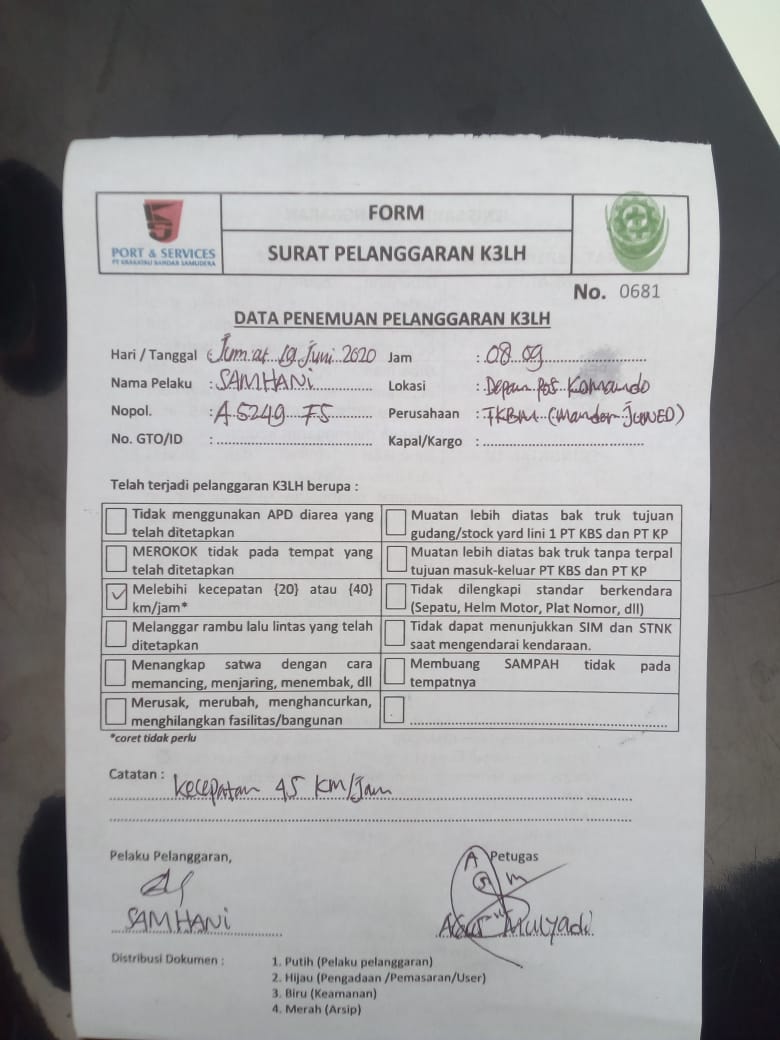 FORM
PORT & SERVICES
PT KRAKATAU BANDAR SAMUDERA
SURAT PELANGGARAN K3LH
No. 0681
DATA PENEMUAN PELANGGARAN K3LH
Hari / Tanggal Jum.at 19 Juni 2020 Jam : 08.09
Nama Pelaku : SAMHANI Lokasi : Depan Pos Komando
Nopol. : A 5249 FS Perusahaan : TKBM (Mandor JUNED)
No. GTO/ID : Kapal/Kargo :
Telah terjadi pelanggaran K3LH berupa :
Tidak menggunakan APD diarea yang
telah ditetapkan
Muatan lebih diatas bak truk tujuan
gudang/stock yard lini 1 PT KBS dan PT KP
MEROKOK tidak pada tempat yang
telah ditetapkan
Muatan lebih diatas bak truk tanpa terpal
tujuan masuk-keluar PT KBS dan PT KP
Melebihi kecepatan {20} atau {40}
km/jam*
Tidak dilengkapi standar berkendara
(Sepatu, Helm Motor, Plat Nomor, dll)
Melanggar rambu lalu lintas yang telah
ditetapkan
Tidak dapat menunjukkan SIM dan STNK
saat mengendarai kendaraan.
Menangkap satwa dengan cara
memancing, menjaring, menembak, dll
Membuang SAMPAH tidak pada
tempatnya
Merusak, merubah, menghancurkan,
menghilangkan fasilitas/bangunan
*coret tidak perlu
Catatan : Kecepatan 45 KM/Jam
Pelaku Pelanggaran, Petugas
SAMHANI Mulyadi
Distribusi Dokumen : 1. Putih (Pelaku pelanggaran)
2. Hijau (Pengadaan /Pemasaran/User)
3. Biru (Keamanan)
4. Merah (Arsip)